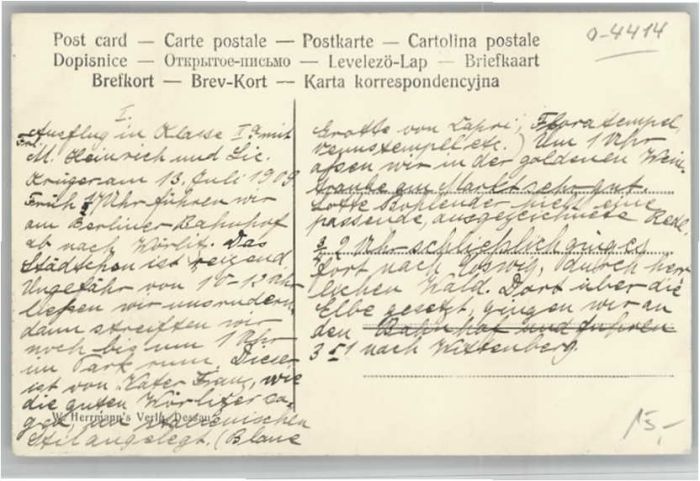 0-4414
Post card — Carte postale — Postkarte — Cartolina postale
Dopisnice — Открытое-письмо — Levelező-Lap — Briefkaart
Brefkort — Brev-Kort — Karta korrespondencyjna
I
Ausflug in Klasse I mit
Frl. M. Heinrich und Lic.
Krüger am 13. Juli 1909
Früh Uhr fuhren wir
am Berliner Bahnhof
ab nach Wörlitz. Das
Städtchen ist reizend
Ungefähr von 10-12 Uhr
ließen wir uns rudern
dann streiften wir
noch bis um 1 Uhr
im Park rum. Dieser
ist von Vater Franz, wie
die guten Wörlitzer sa-
gen, im italienischen
Stil angelegt. (Blaue
W. Herrmann's Verlag, Dessau
Grotte von Capri, Floratempel,
Venustempel etc.) Um 1 Uhr
assen wir in der goldenen Wein-
traube am Markt sehr gut.
Lotte Bohlender hielt eine
passende, ausgezeichnete Rede.
2 Uhr schließlich ging es
fort nach Coswig, durch herr-
lichen Wald. Dort über die
Elbe gesetzt, gingen wir an
den Bahnhof und fuhren
3 51 nach Wittenberg.
15,-